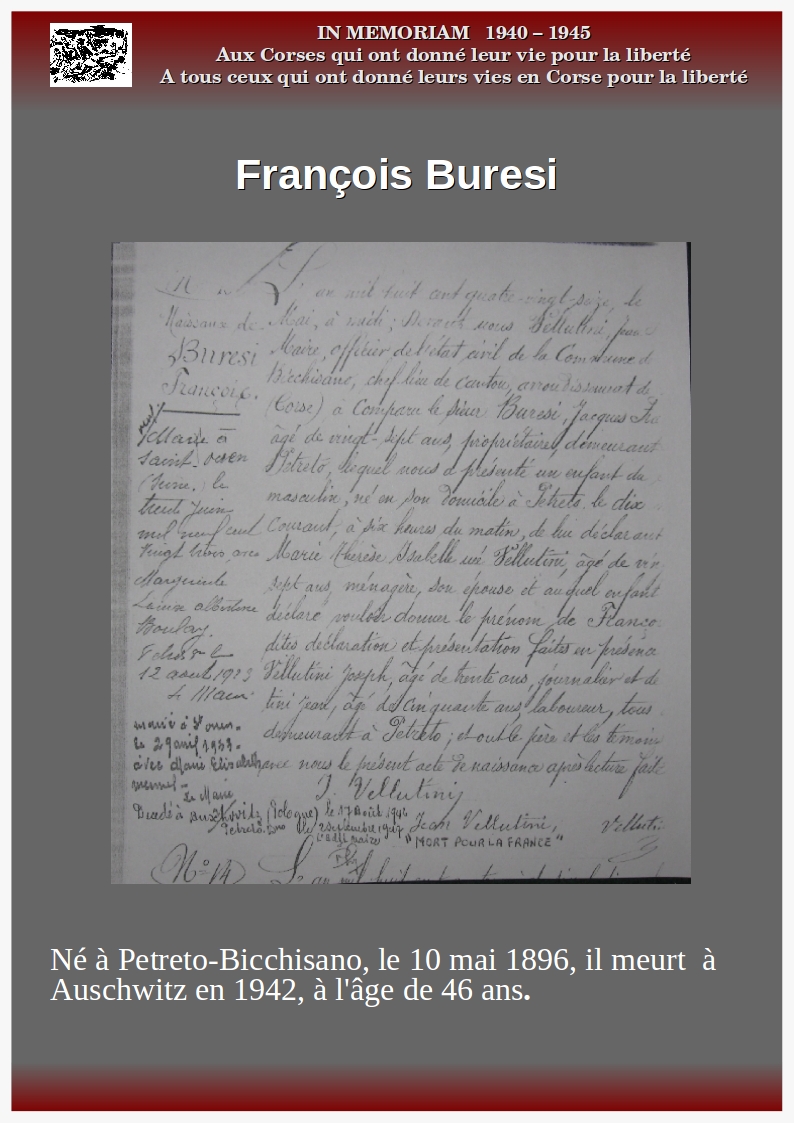 IN MEMORIAM 1940 – 1945
Aux Corses qui ont donné leur vie pour la liberté
A tous ceux qui ont donné leurs vies en Corse pour la liberté
François Buresi
L'an mil huit cent quatre-vingt-seize, le
Mai, à midi; Devant nous Vellutini, Jean
Maire, officier de l'état civil de la Commune d
Bicchisano, chef lieu de canton, arrondissement de
(Corse) a comparu le sieur Buresi, Jacques Fra
âgé de vingt-sept ans, propriétaire, demeurant
Petreto, lequel nous a présenté un enfant du
masculin, né en son domicile à Petreto le dix
courant, à six heures du matin, de lui déclarant
Marie Thérèse Isabelle née Vellutini, âgé de vin
sept ans, ménagère, son épouse et auquel enfant
déclaré vouloir donner le prénom de Franço
dites déclaration et présentation faites en présence
Vellutini Joseph, âgé de trente ans, journalier et de
tini Jean, âgé de cinquante ans, laboureur, tous
demeurant à Petreto; et ont le père et les témoin
nous le présent acte de naissance après lecture faite
J. Vellutini
Jean Vellutini, Velluti
"MORT POUR LA FRANCE"
Naissance de
Buresi
François.
Marié à
Saint-Ouen
(Seine) le
trente Juin
mil neuf cent
vingt trois avec
Marguerite
Louise Albertine
Boulay.
12 août 1923
Le Maire
marié à St Ouen
le 29 avril 1933
avec Marie Elisabeth
Le Maire
Décédé à Auschwitz (Pologne) le 17 Août 1942
Petreto le 2 Septembre 1947
Nº 14
L'an mil huit cent
Né à Petreto-Bicchisano, le 10 mai 1896, il meurt à
Auschwitz en 1942, à l'âge de 46 ans.